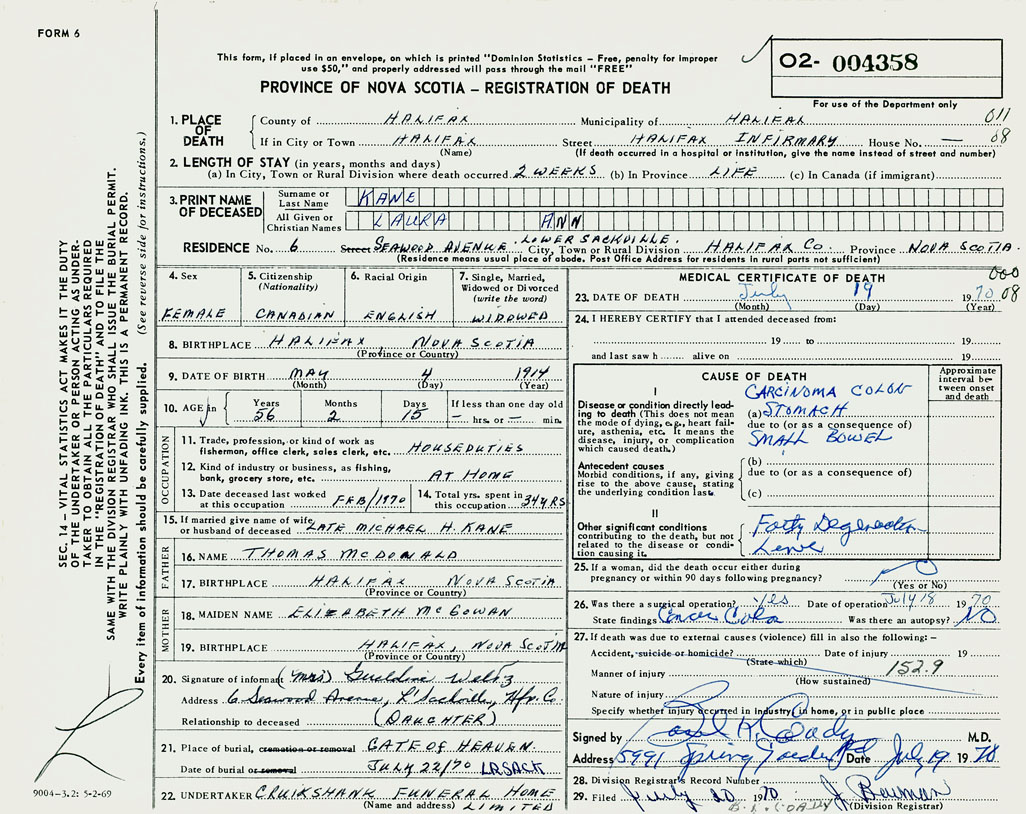 FORM 6
This form, if placed in an envelope, on which is printed "Dominion Statistics – Free, penalty for improper
use $50," and properly addressed will pass through the mail "FREE"
PROVINCE OF NOVA SCOTIA – REGISTRATION OF DEATH
02- 004358
For use of the Department only
SEC. 14 – VITAL STATISTICS ACT MAKES IT THE DUTY
OF THE UNDERTAKER OR PERSON ACTING AS UNDER-
TAKER TO OBTAIN ALL THE PARTICULARS REQUIRED
IN THE "REGISTRATION OF DEATH" AND TO FILE THE
SAME WITH THE DIVISION REGISTRAR WHO SHALL ISSUE THE BURIAL PERMIT.
WRITE PLAINLY WITH UNFADING INK. THIS IS A PERMANENT RECORD.
Every item of information should be carefully supplied. (See reverse side for instructions.)
1. PLACE OF DEATH County of HALIFAX Municipality of HALIFAX 011
If in City or Town HALIFAX Street HALIFAX INFIRMARY House No. — 08
(Name) (If death occurred in a hospital or institution, give the name instead of street and number)
2. LENGTH OF STAY (in years, months and days)
(a) In City, Town or Rural Division where death occurred 2 WEEKS (b) In Province LIFE (c) In Canada (if immigrant)
3. PRINT NAME OF DECEASED Surname or Last Name KANE
All Given or Christian Names LAURA ANN
RESIDENCE No. 6 Street SEAWOOD AVENUE LOWER SACKVILLE City, Town or Rural Division HALIFAX Co. Province NOVA SCOTIA.
(Residence means usual place of abode. Post Office Address for residents in rural parts not sufficient)
4. Sex FEMALE
5. Citizenship (Nationality) CANADIAN
6. Racial Origin ENGLISH
7. Single, Married, Widowed or Divorced (write the word) WIDOWED
8. BIRTHPLACE HALIFAX NOVA SCOTIA
(Province or Country)
9. DATE OF BIRTH MAY 4 1914
(Month) (Day) (Year)
10. AGE in Years 56 Months 2 Days 15 If less than one day old — hrs. or — min.
OCCUPATION
11. Trade, profession, or kind of work as fisherman, office clerk, sales clerk, etc. HOUSEDUTIES
12. Kind of industry or business, as fishing, bank, grocery store, etc. AT HOME
13. Date deceased last worked at this occupation FEB/1970
14. Total yrs. spent in this occupation 34 YRS
15. If married give name of wife or husband of deceased LATE MICHAEL H. KANE
FATHER
16. NAME THOMAS McDONALD
17. BIRTHPLACE HALIFAX NOVA SCOTIA
(Province or Country)
MOTHER
18. MAIDEN NAME ELIZABETH McGOWAN
19. BIRTHPLACE HALIFAX, NOVA SCOTIA
(Province or Country)
20. Signature of informant (Mrs) Geraldine
Address 6 Seawood Avenue, L'Sackville, Hfx. Co.
Relationship to deceased (DAUGHTER)
21. Place of burial, cremation or removal GATE OF HEAVEN.
Date of burial or removal JULY 22/70 LR SACK
22. UNDERTAKER CRUIKSHANK FUNERAL HOME
(Name and address) LIMITED
9004-3.2: 5-2-69
MEDICAL CERTIFICATE OF DEATH 000
23. DATE OF DEATH July 19 1970 08
(Month) (Day) (Year)
24. I HEREBY CERTIFY that I attended deceased from:
19 to 19
and last saw h alive on 19
CAUSE OF DEATH
Approximate interval between onset and death
I
Disease or condition directly leading to death (This does not mean the mode of dying, e.g., heart failure, asthenia, etc. It means the disease, injury, or complication which caused death.)
CARCINOMA COLON
(a) STOMACH
due to (or as a consequence of)
SMALL BOWEL
Antecedent causes
Morbid conditions, if any, giving rise to the above cause, stating the underlying condition last.
(b)
due to (or as a consequence of)
(c)
II
Other significant conditions contributing to the death, but not related to the disease or condition causing it.
Fatty Degeneration
25. If a woman, did the death occur either during pregnancy or within 90 days following pregnancy?
(Yes or No)
26. Was there a surgical operation? Yes Date of operation July 18 1970
State findings Cancer Colon Was there an autopsy? NO
27. If death was due to external causes (violence) fill in also the following: –
Accident, suicide or homicide? Date of injury 19
(State which)
Manner of injury 152.9
(How sustained)
Nature of injury
Specify whether injury occurred in industry, in home, or in public place
Signed by Coady M.D.
Address 5991 Spring Garden Rd Date July 19 1970
28. Division Registrar's Record Number
29. Filed July 20 1970 J. Bauman
(Division Registrar)